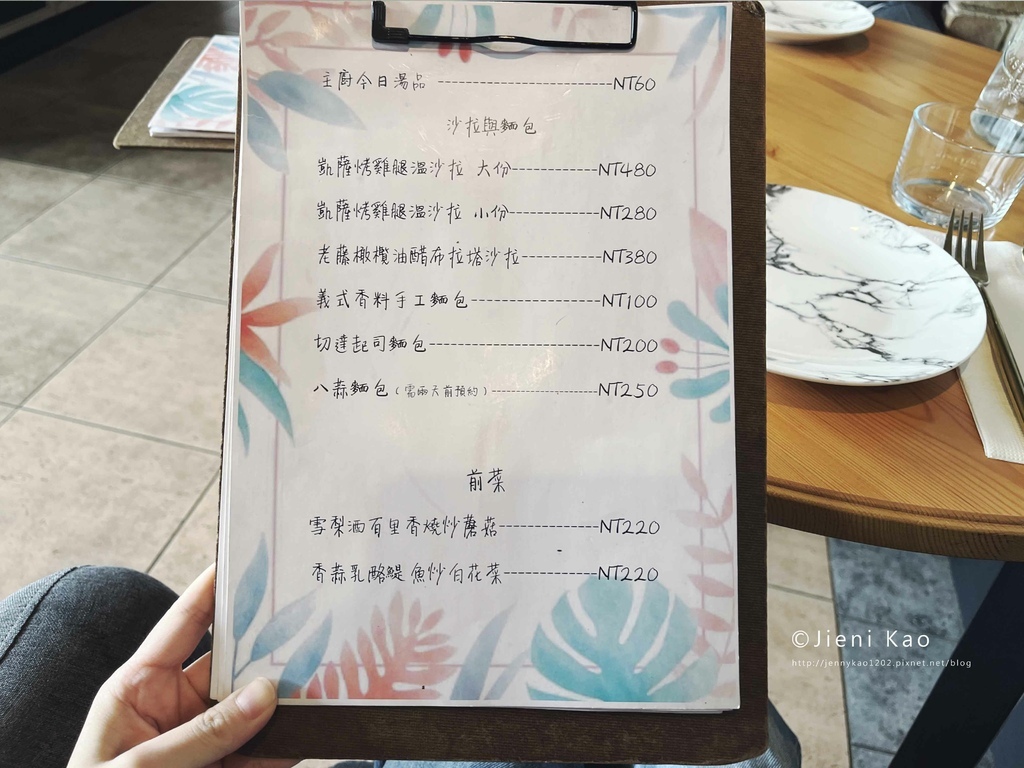 主廚今日湯品 ------------------------NT60
沙拉與麵包
凱薩烤雞腿溫沙拉 大份------------NT480
凱薩烤雞腿溫沙拉 小份------------NT280
老藤橄欖油醋布拉塔沙拉-----------NT380
義式香料手工麵包------------------NT100
切達起司麵包------------------------NT200
八蒜麵包(需兩天前預約)---------------NT250
前菜
雪梨酒百里香燒炒蘑菇--------------NT220
香蒜乳酪鯷魚炒白花菜-------------NT220
©Jieni Kao
http://jennykao1202.pixnet.net/blog